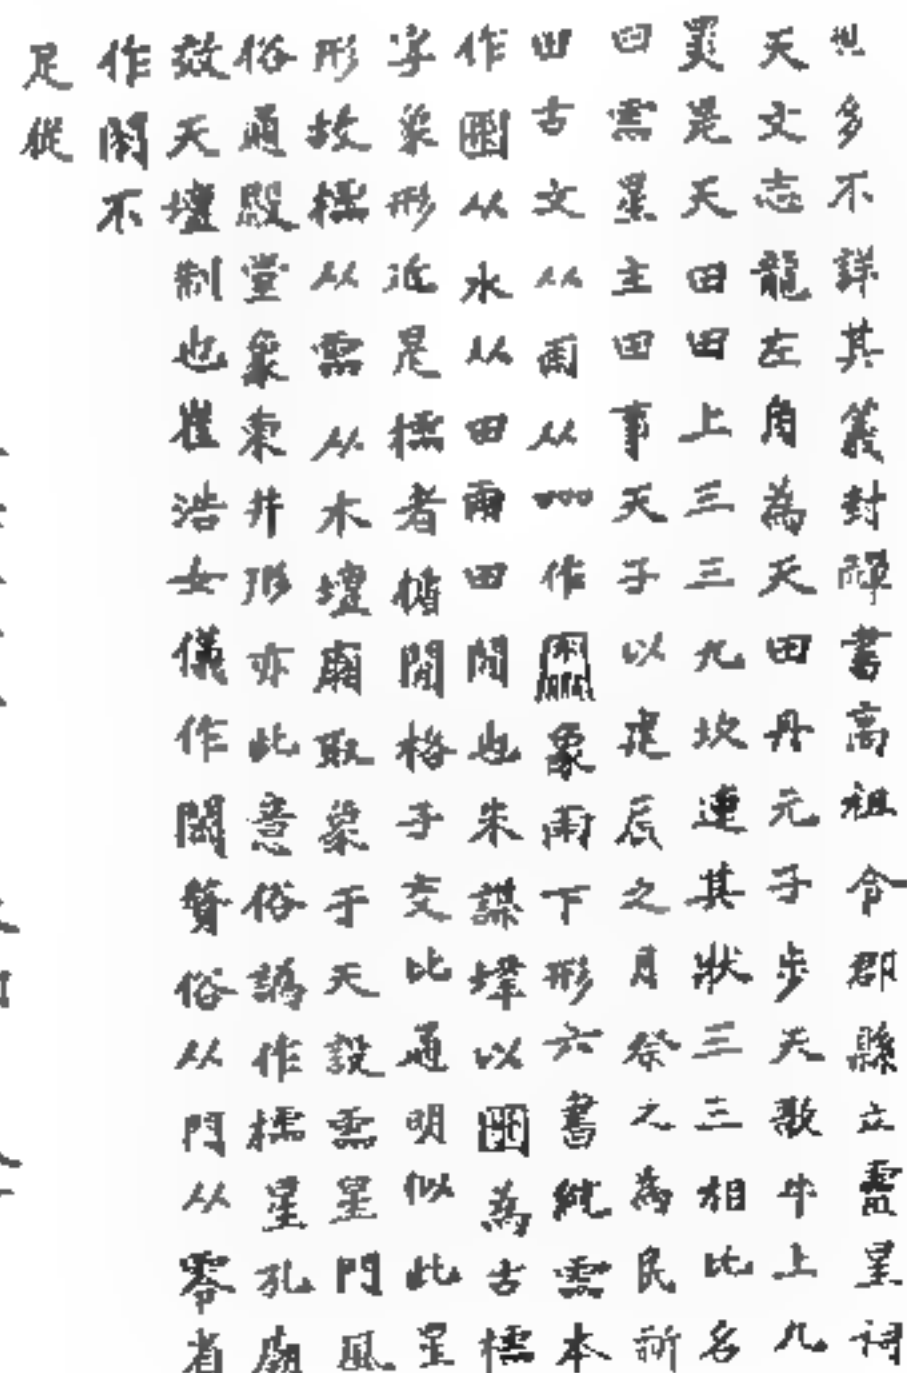 也多不詳其義封禪書高祖令郡縣立靈星祠
天文志龍左角為天田丹元子步天歌牛上九
是天田田上三三九坎連其狀三三相比名
田靈星主田事天子以建辰之月祭之為民祈
田古文从雨从作象雨下形六書統靈本
作从水从田雨田間也朱謀㙔以為古櫺
字象形近是櫺者楯間格子交比通明似此星
形故櫺从霝从木壇廟取象于天設靈星門風
俗通殿堂象東井形亦此意俗譌作櫺星孔廟
效天壇制也崔浩女儀作閫贅俗从門从零者
作不
足從